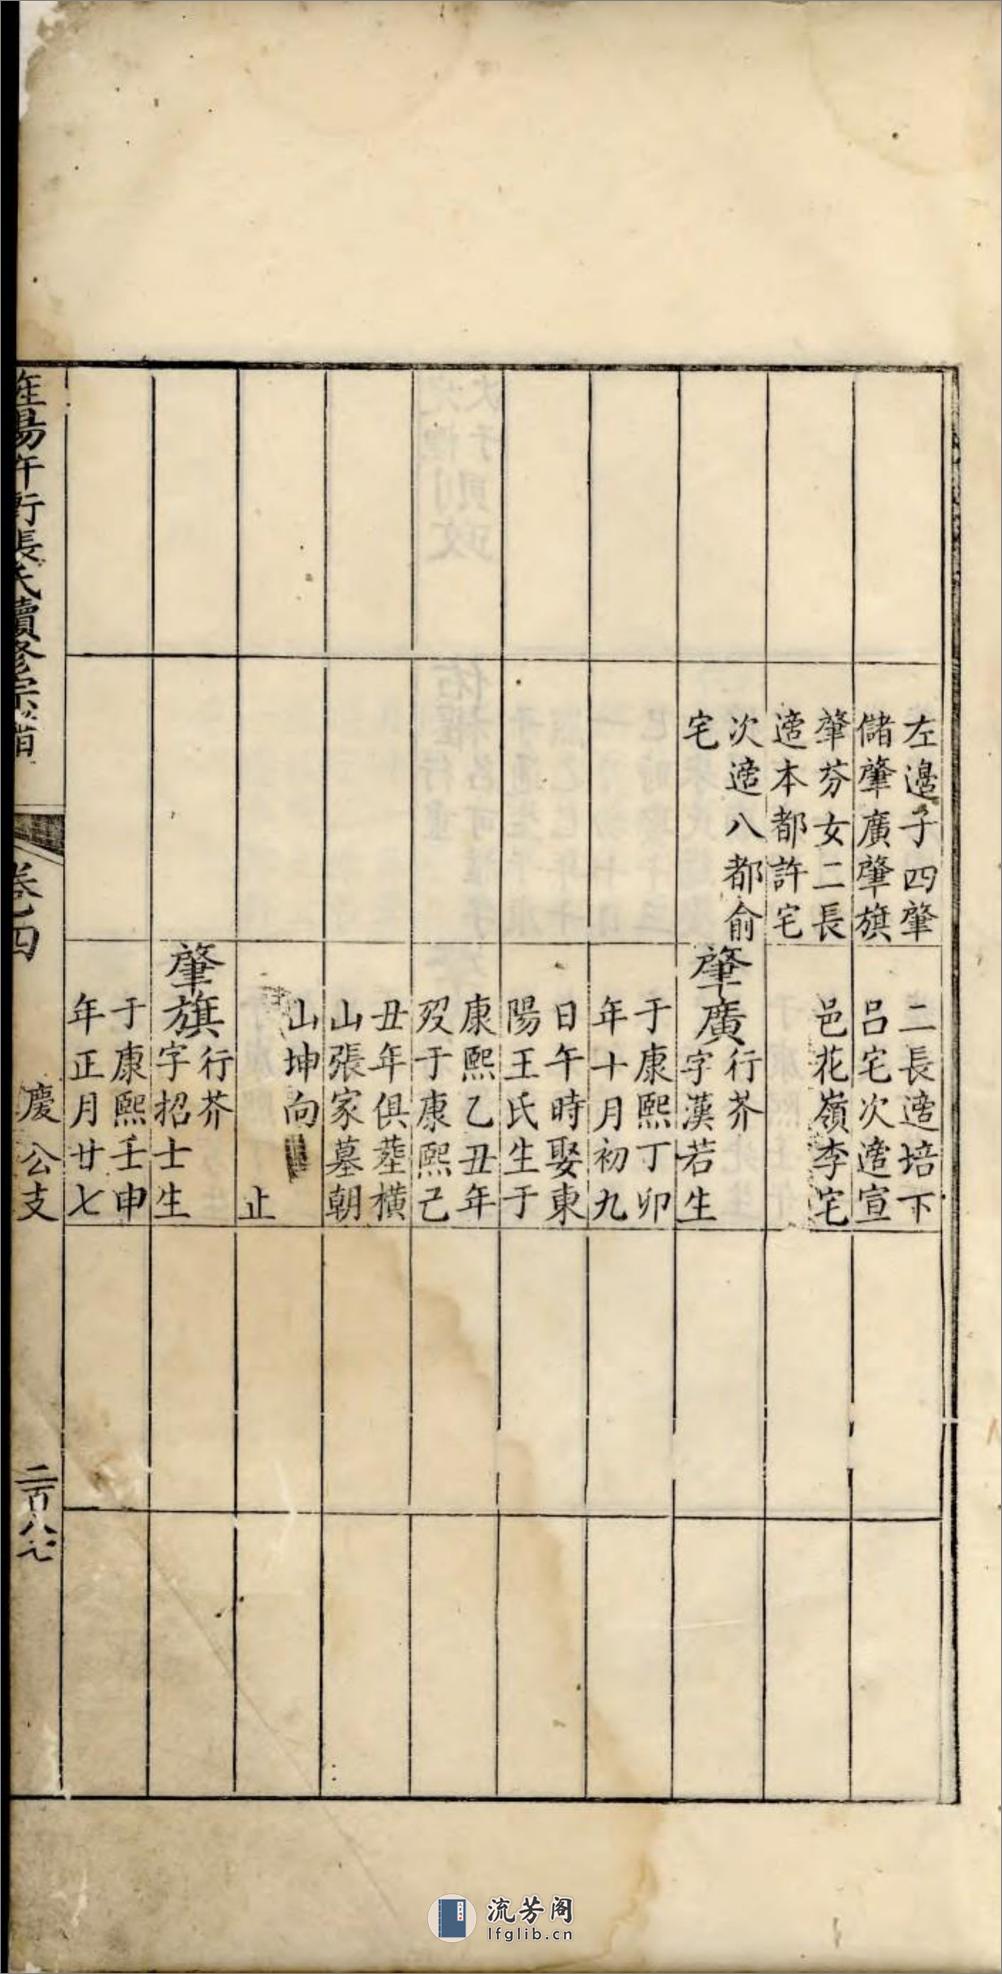 左邊子四肇
儲肇廣肇旗
肇芬女二長
適本都許宅
次適八都俞
宅
二長適培下
呂宅次適宣
邑花嶺李宅
肇廣
行芥
字漢若生
于康熙丁卯
年十月初九
日午時娶東
陽王氏生于
康熙乙丑年
歿于康熙己
丑年俱塟橫
山張家墓朝
山坤向
止
肇旗
行芥
字招士生
于康熙壬申
年正月廿七
陽許衕張氏續修宗譜
卷四
慶公支
二百八七
流芳阁
lfglib.cn